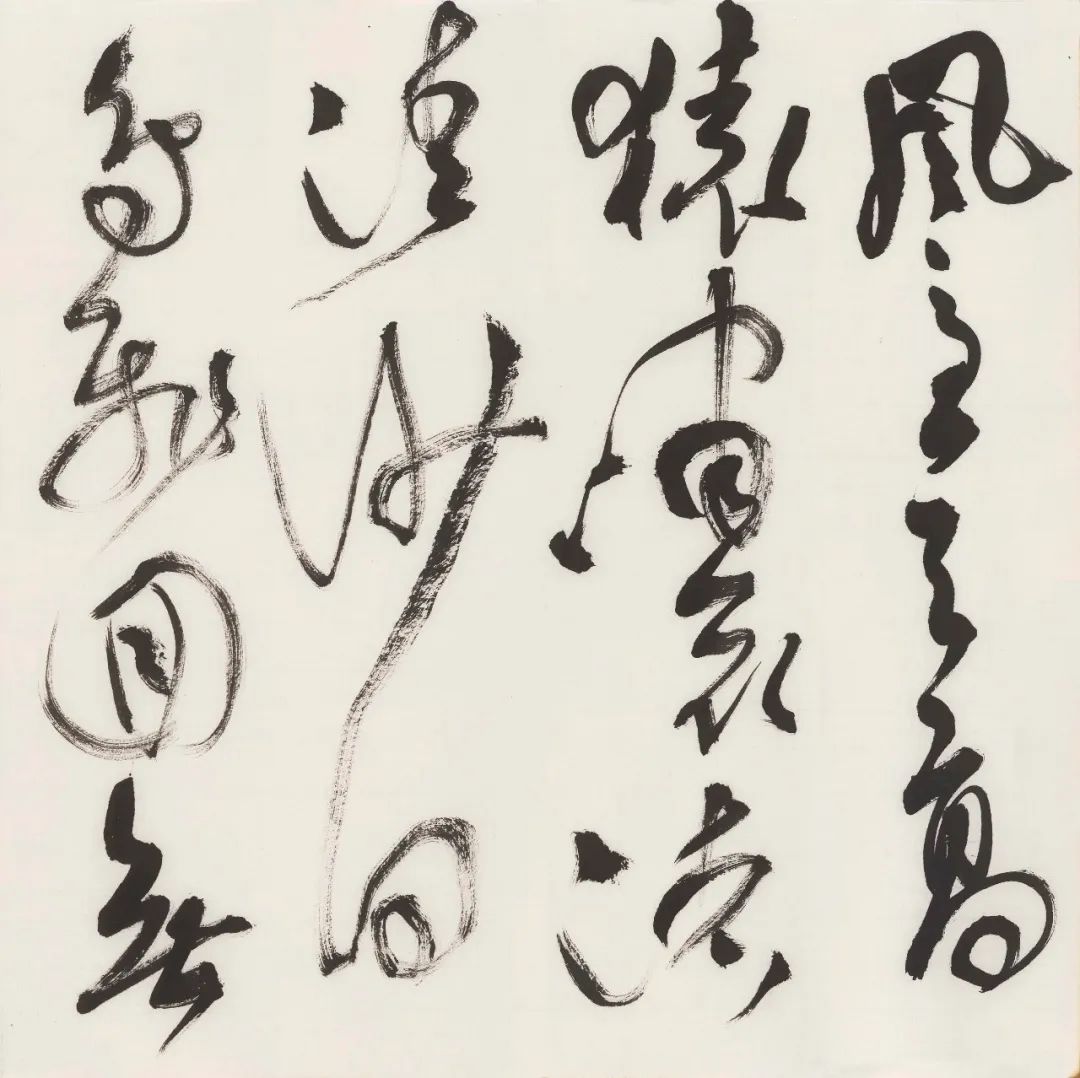 風急天高
猿嘯哀渚
清沙白
鳥飛回無